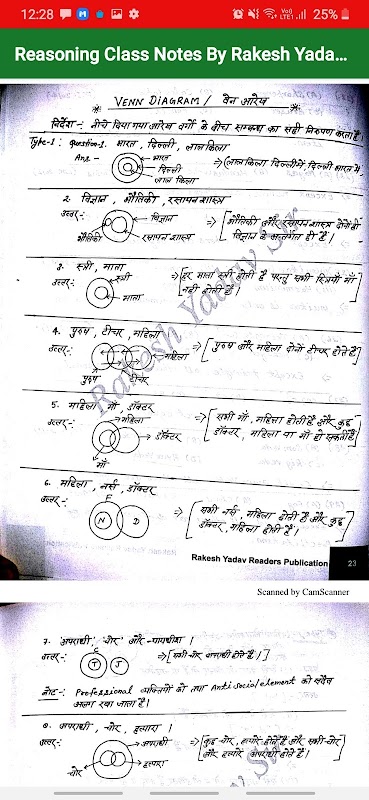 12:28
25%
Reasoning Class Notes By Rakesh Yada...
VENN DIAGRAM / वेन आरेख
निर्देश -: नीचे दिया गया आरेख वर्गों के बीच सम्बन्ध का सही निरूपण करता है
Type-1: Question-1. भारत, दिल्ली, लाल किला
Ans.-
भारत
दिल्ली
लाल किला
⇒ (लाल किला दिल्ली में दिल्ली भारत में
2. विज्ञान, भौतिकी, रसायन शास्त्र
उत्तर-:
विज्ञान
भौतिकी
रसायन शास्त्र
⇒ [भौतिकी और रसायन शास्त्र दोनों ही
विज्ञान के अन्तर्गत ही है।
3. स्त्री, माता
उत्तर-:
स्त्री
माता
⇒ [हर माता स्त्री होती है परन्तु सभी स्त्रियाँ माँ
नहीं होती है]
4. पुरुष, टीचर, महिला
उत्तर-:
महिला
पुरुष
टीचर
⇒ [पुरुष और महिला दोनों टीचर होते हैं]
5. महिला, माँ, डॉक्टर
उत्तर-:
महिला
डॉक्टर
माँ
⇒ [सभी माँ, महिला होती हैं और कुछ
डॉक्टर, महिला या माँ हो सकती हैं]
6. महिला, नर्स, डॉक्टर
उत्तर-:
F
N
D
⇒ [सभी नर्स, महिला होती हैं और कुछ
डॉक्टर, महिला होती हैं।]
Rakesh Yadav Readers Publication
23
Scanned by CamScanner
7. अपराधी, चोर और न्यायधीश।
उत्तर-:
C
T
J
⇒ [सभी चोर अपराधी होते हैं।]
नोट-: Professional व्यक्तियों को तथा Antisocial element को सदैव
अलग रखा जाता है।
8. अपराधी, चोर, हत्यारा।
उत्तर-:
अपराधी
चोर
हत्यारा
⇒ [कुछ चोर, हत्यारे होते हैं और सभी चोर
और हत्यारे अपराधी होते हैं।]
Rakesh Yadav Sir